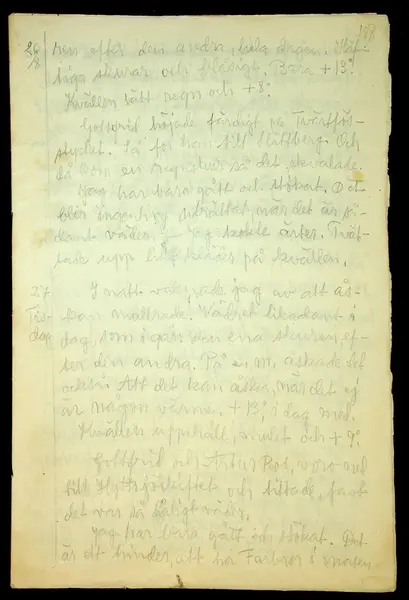 108
26/8 ren efter den andra, hela dagen. Häf-
tiga skurar och blåsigt. Bara +13°.
Kvällen lätt regn och +8°
Gottfrid höjade färdigt på
stycket. Så for han till Och
då kom en så det skvalade.
Jag har bara gått och stökat. Det
blir ingenting uträttat när det är så-
dant väder. Jag kokte ärter.
upp på kvällen.
27 I natt vaknade jag av att ås-
Tis- kan mullrade. Vädret likadant i
dag dag, som igår den ena skuren ef-
ter den andra. På e.m. åskade det
också. Att det kan åska, när det ej
är någon värme. +13° i dag med.
Kvällen uppehåll, mulet och +9°.
Gottfrid och Artur Ros, voro ned
till och tittade, fast
det var så dåligt väder.
Jag har bara gått och stökat. Det
är ett hinder, att ha Farbror i